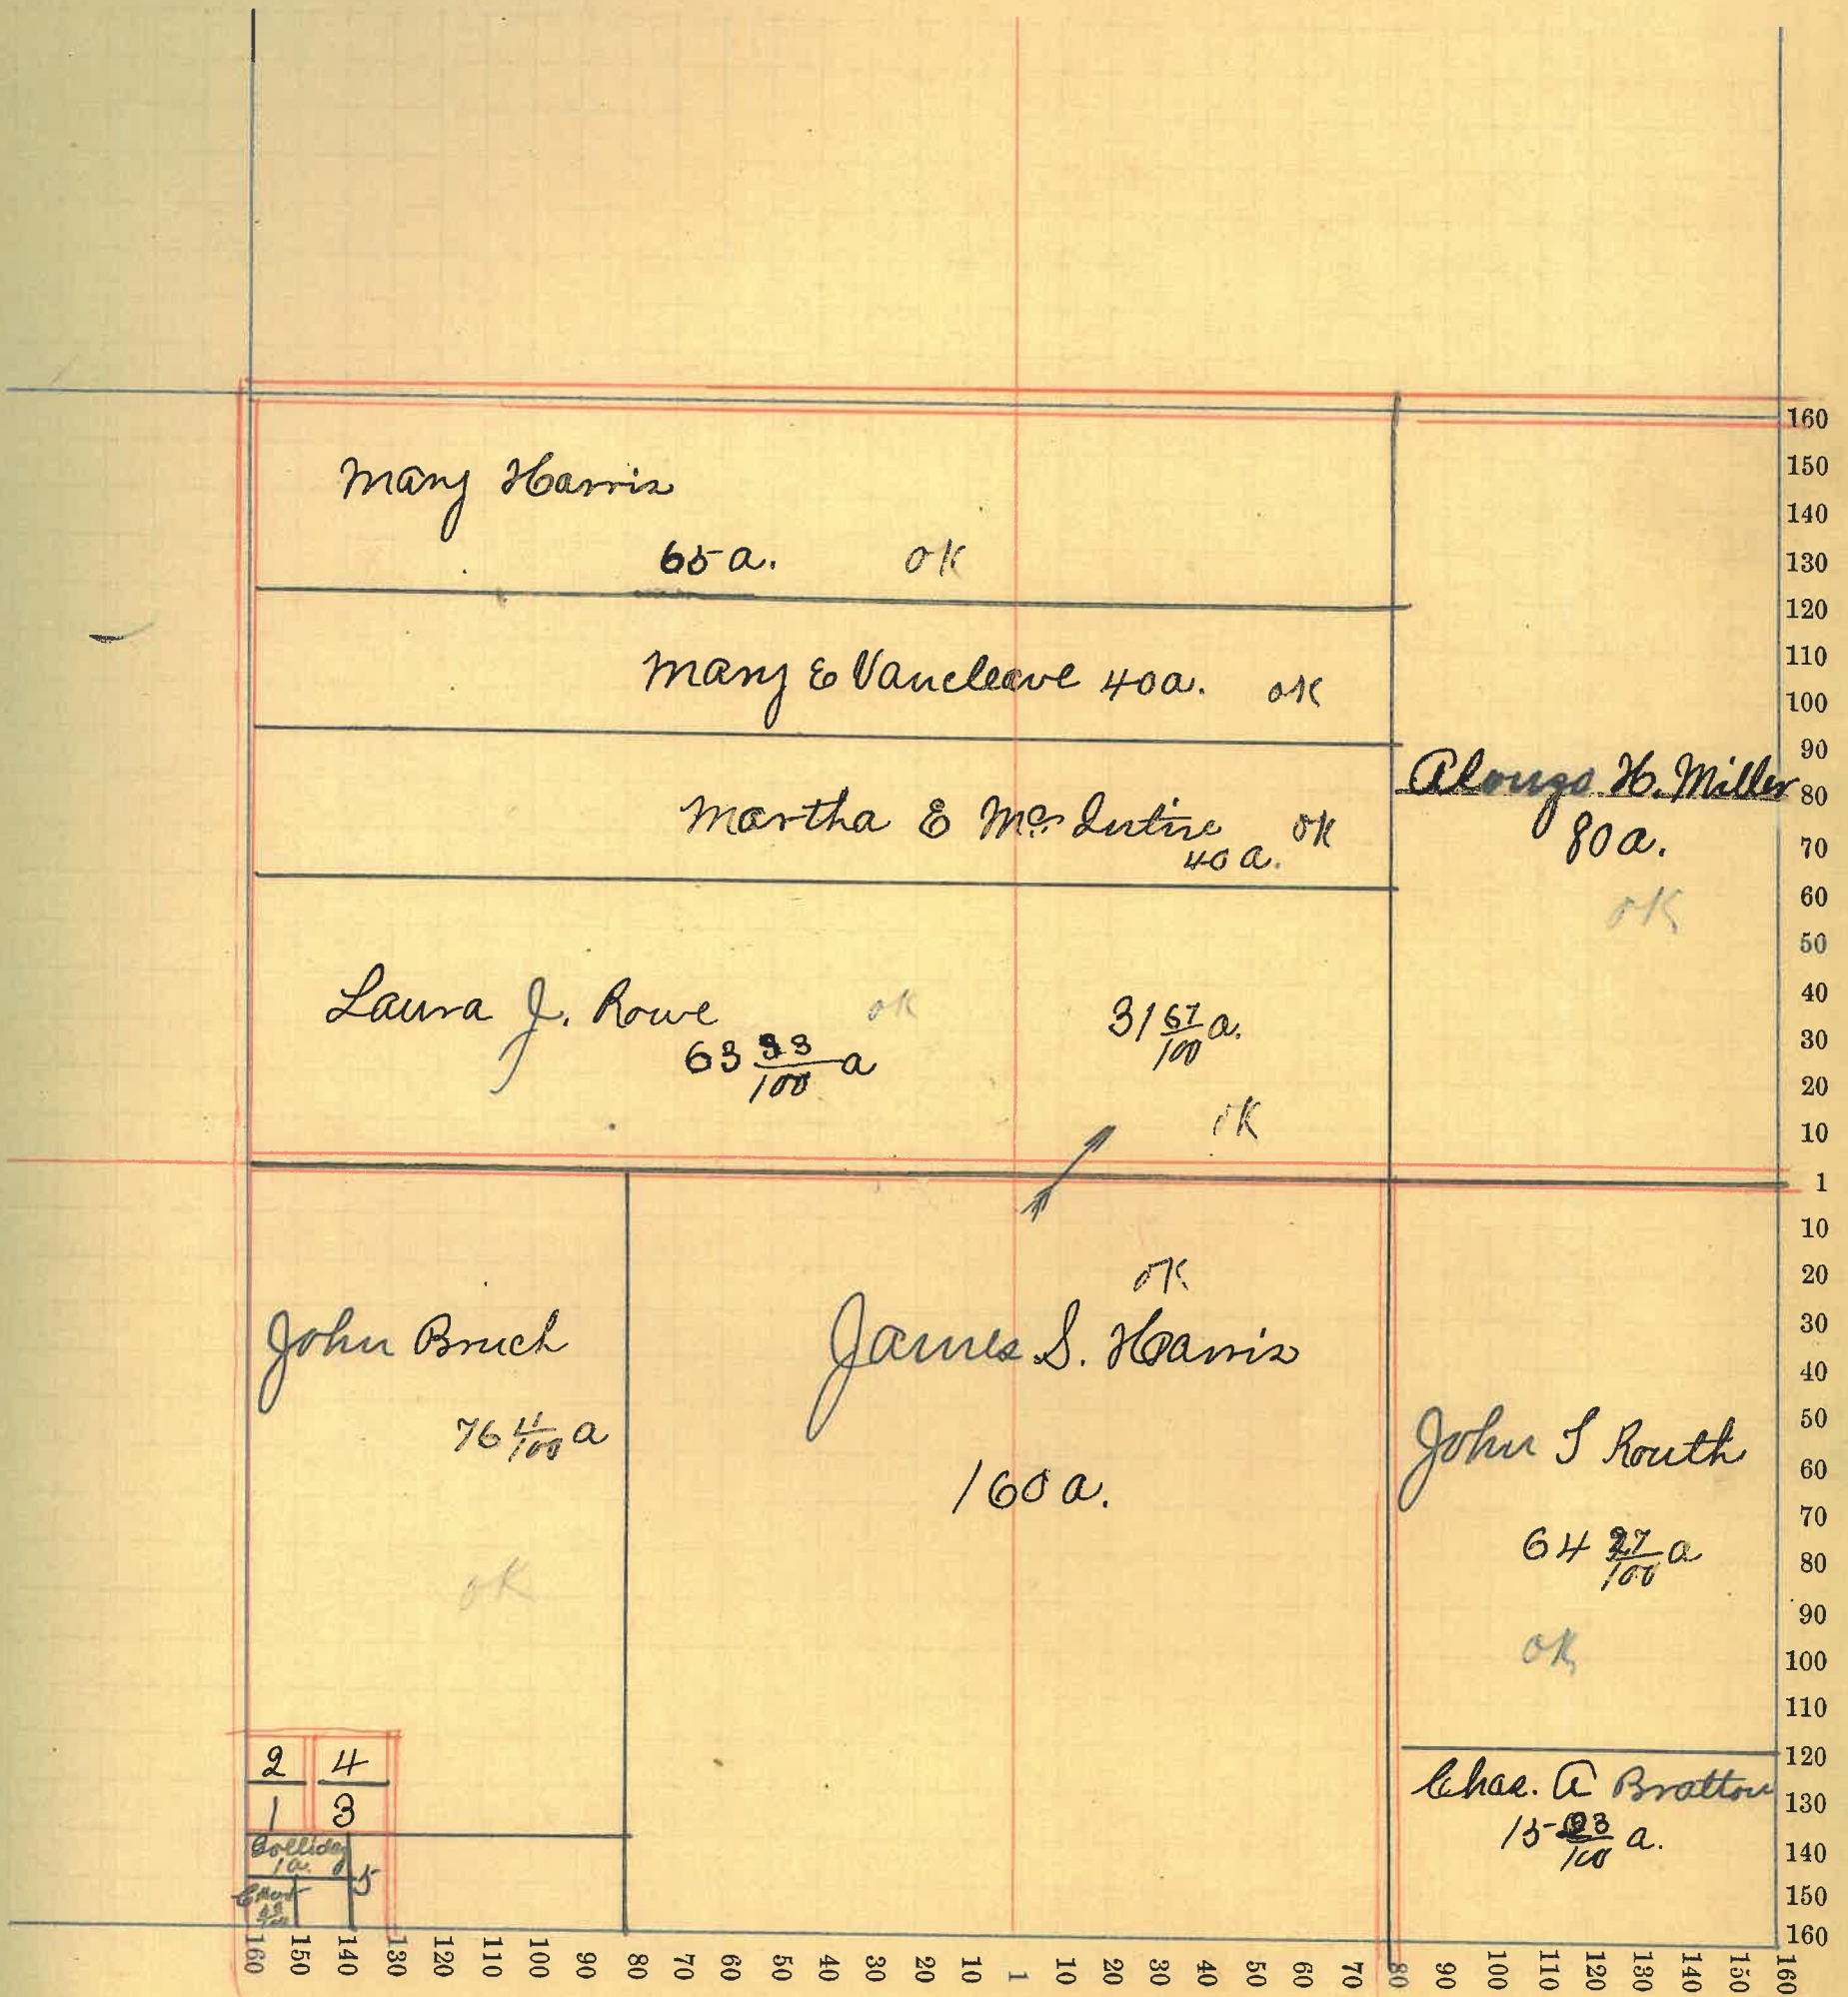 Mary Harris
65 a. OK
Mary E Vancleave 40a. OK
Martha E Mc Intire OK
40 a.
Alonzo H. Miller
80 a.
OK
Laura J. Rowe OK
63 33/100 a
31 67/100 a.
OK
John Bruch
76 4/100 a
OK
OK
James S. Harris
160 a.
John S Routh
64 27/100 a
OK
Chas. A Bratton
15 23/100 a.
2 4
1 3
Golliday
1 a.
5
160
150
140
130
120
110
100
90
80
70
60
50
40
30
20
10
1
10
20
30
40
50
60
70
80
90
100
110
120
130
140
150
160
160 150 140 130 120 110 100 90 80 70 60 50 40 30 20 10 1 10 20 30 40 50 60 70 80 90 100 110 120 130 140 150 160